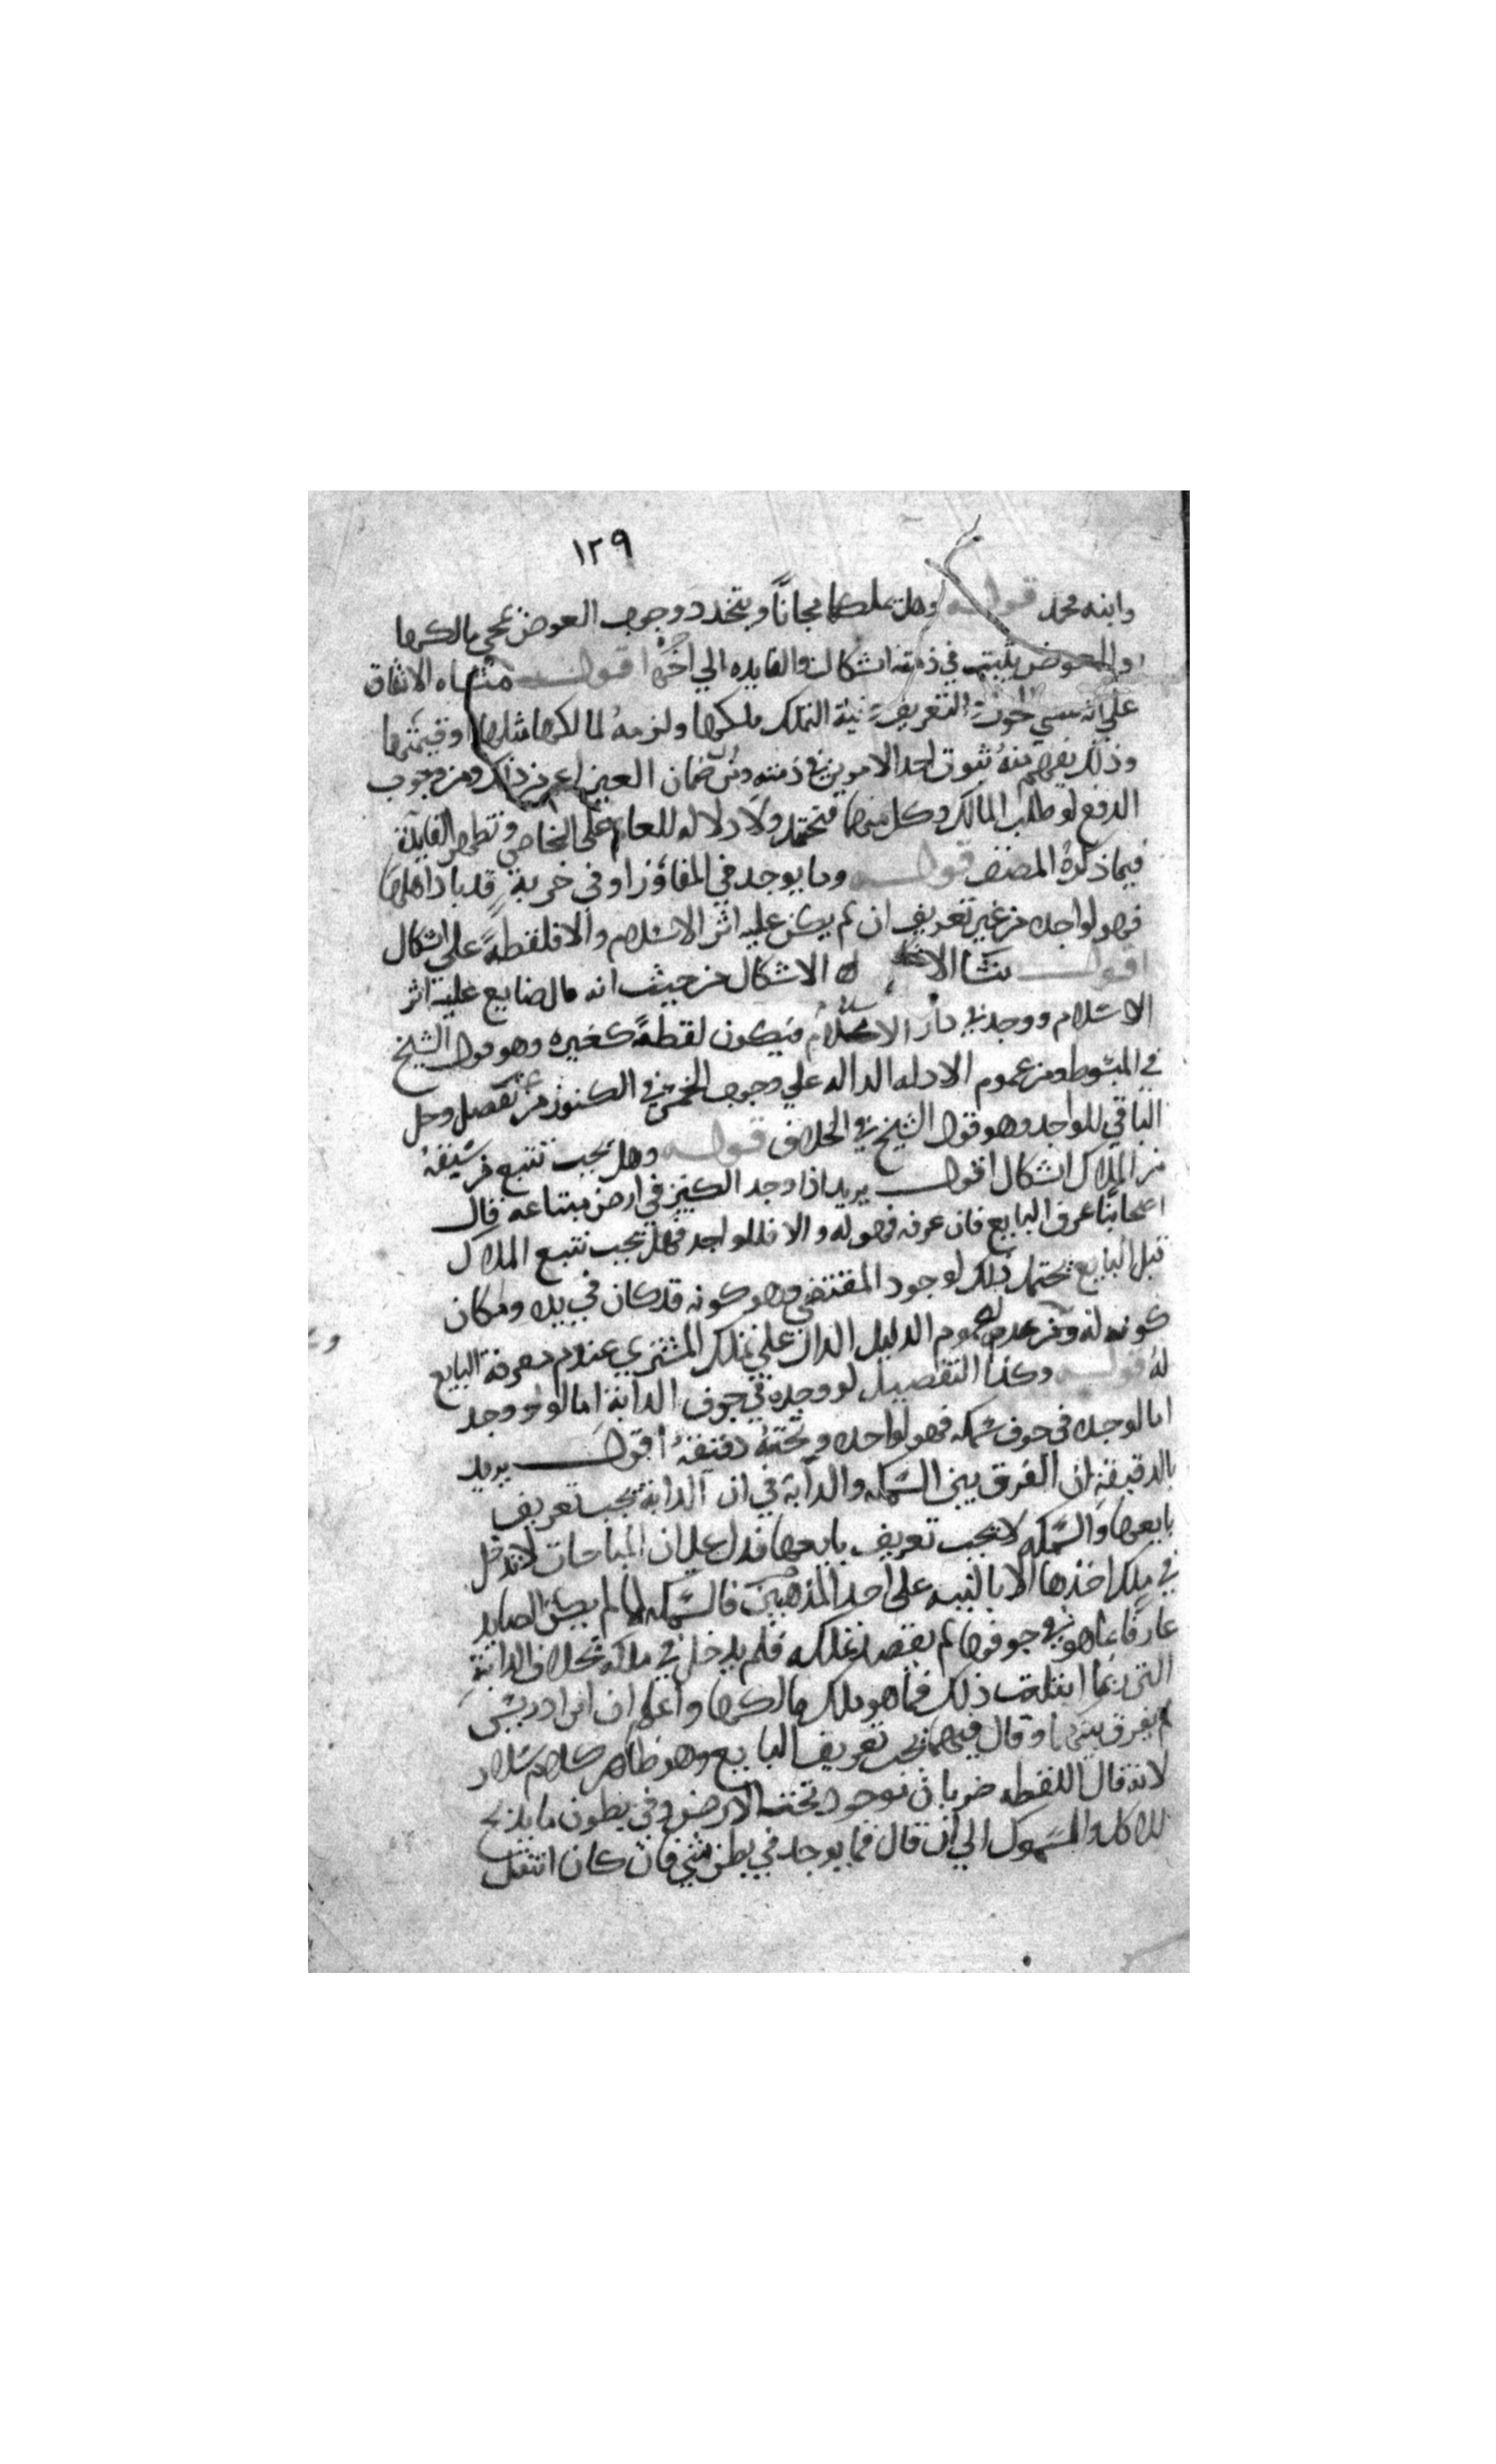 ١٢٩
وابنه محمد قوله وهل يملكها مجاناً ويتجدد وجوب العوض بمجي مالكها
والعوض يثبت في ذمته اشكال والفايده الي اخره اقول منشاه الاتفاق
علي انه متي التعريف ونية التملك ملكها ولزمه لمالكها مثلها او قيمتها
وذلك يفهم منه ثبوت احد الامرين في ذمته ومن ضمان العين اعم من ذلك ومن وجوب
الدفع لو طلب المالك وكل منهما محتمل ولا دلاله للعام على الخاص وتظهر الفايدة
فيما ذكره المصنف قوله وما يوجد في المفاوز او في خربة قد باد اهلها
فهو لواجده من غير تعريف ان لم يكن عليه اثر الاسلام والا فلقطة على اشكال
اقول ينشا الاشكال من حيث انه مال ضايع عليه اثر
الاسلام ووجد في دار الاسلام فيكون لقطةً كغيره وهو قول الشيخ
في المبسوط ومن عموم الادله الداله علي وجوب الخمس في الكنوز من غير تفصيل وحل
الباقي للواجد وهو قول الشيخ في الخلاف قوله وهل يجب تتبع من سبقه
من الملاك اشكال اقول يريد اذا وجد الكنز في ارض مبتاعه قال
اصحابنا عرف البايع فان عرفه فهو له والا فللواجد فهل يجب تتبع الملاك
قبل البايع يحتمل ذلك لوجود المقتضي وهو كونه قد كان في يده ومكان
كونه له ومن عموم الدليل الدال علي تملك المشتري عند عدم معرفة البايع
له قوله وكذا التفصيل لو وجده في جوف الدابة اما لو وجد
اما لو وجده في جوف سمكه فهو لواجده وتحته دقيقة اقول يريد
بالدقيقة ان الفرق بين السمكه والدابة في ان الدابة يجب تعريف
بايعها والسمكه لا يجب تعريف بايعها فدل علي ان المباحات لا تدخل
في ملك اخذها الا بالنيه على احد المذهبين فالسمكه لما لم يكن الصايد
عارفا بما هو في جوفها لم يقصد تملكه فلم يدخل في ملكه بخلاف الدابة
التي ربما ابتلعت ذلك فما هو ملك مالكها واعلم ان ابن ادريس
لم يفرق بينهما وقال فيهما يجب تعريف البايع وهو ظاهر كلام سلار
لانه قال اللقطه ضربان موجود تحت الارض وفي بطون ما يذبح
للاكل والسموك الي ان قال فما يوجد في بطن شي فان كان انتقل